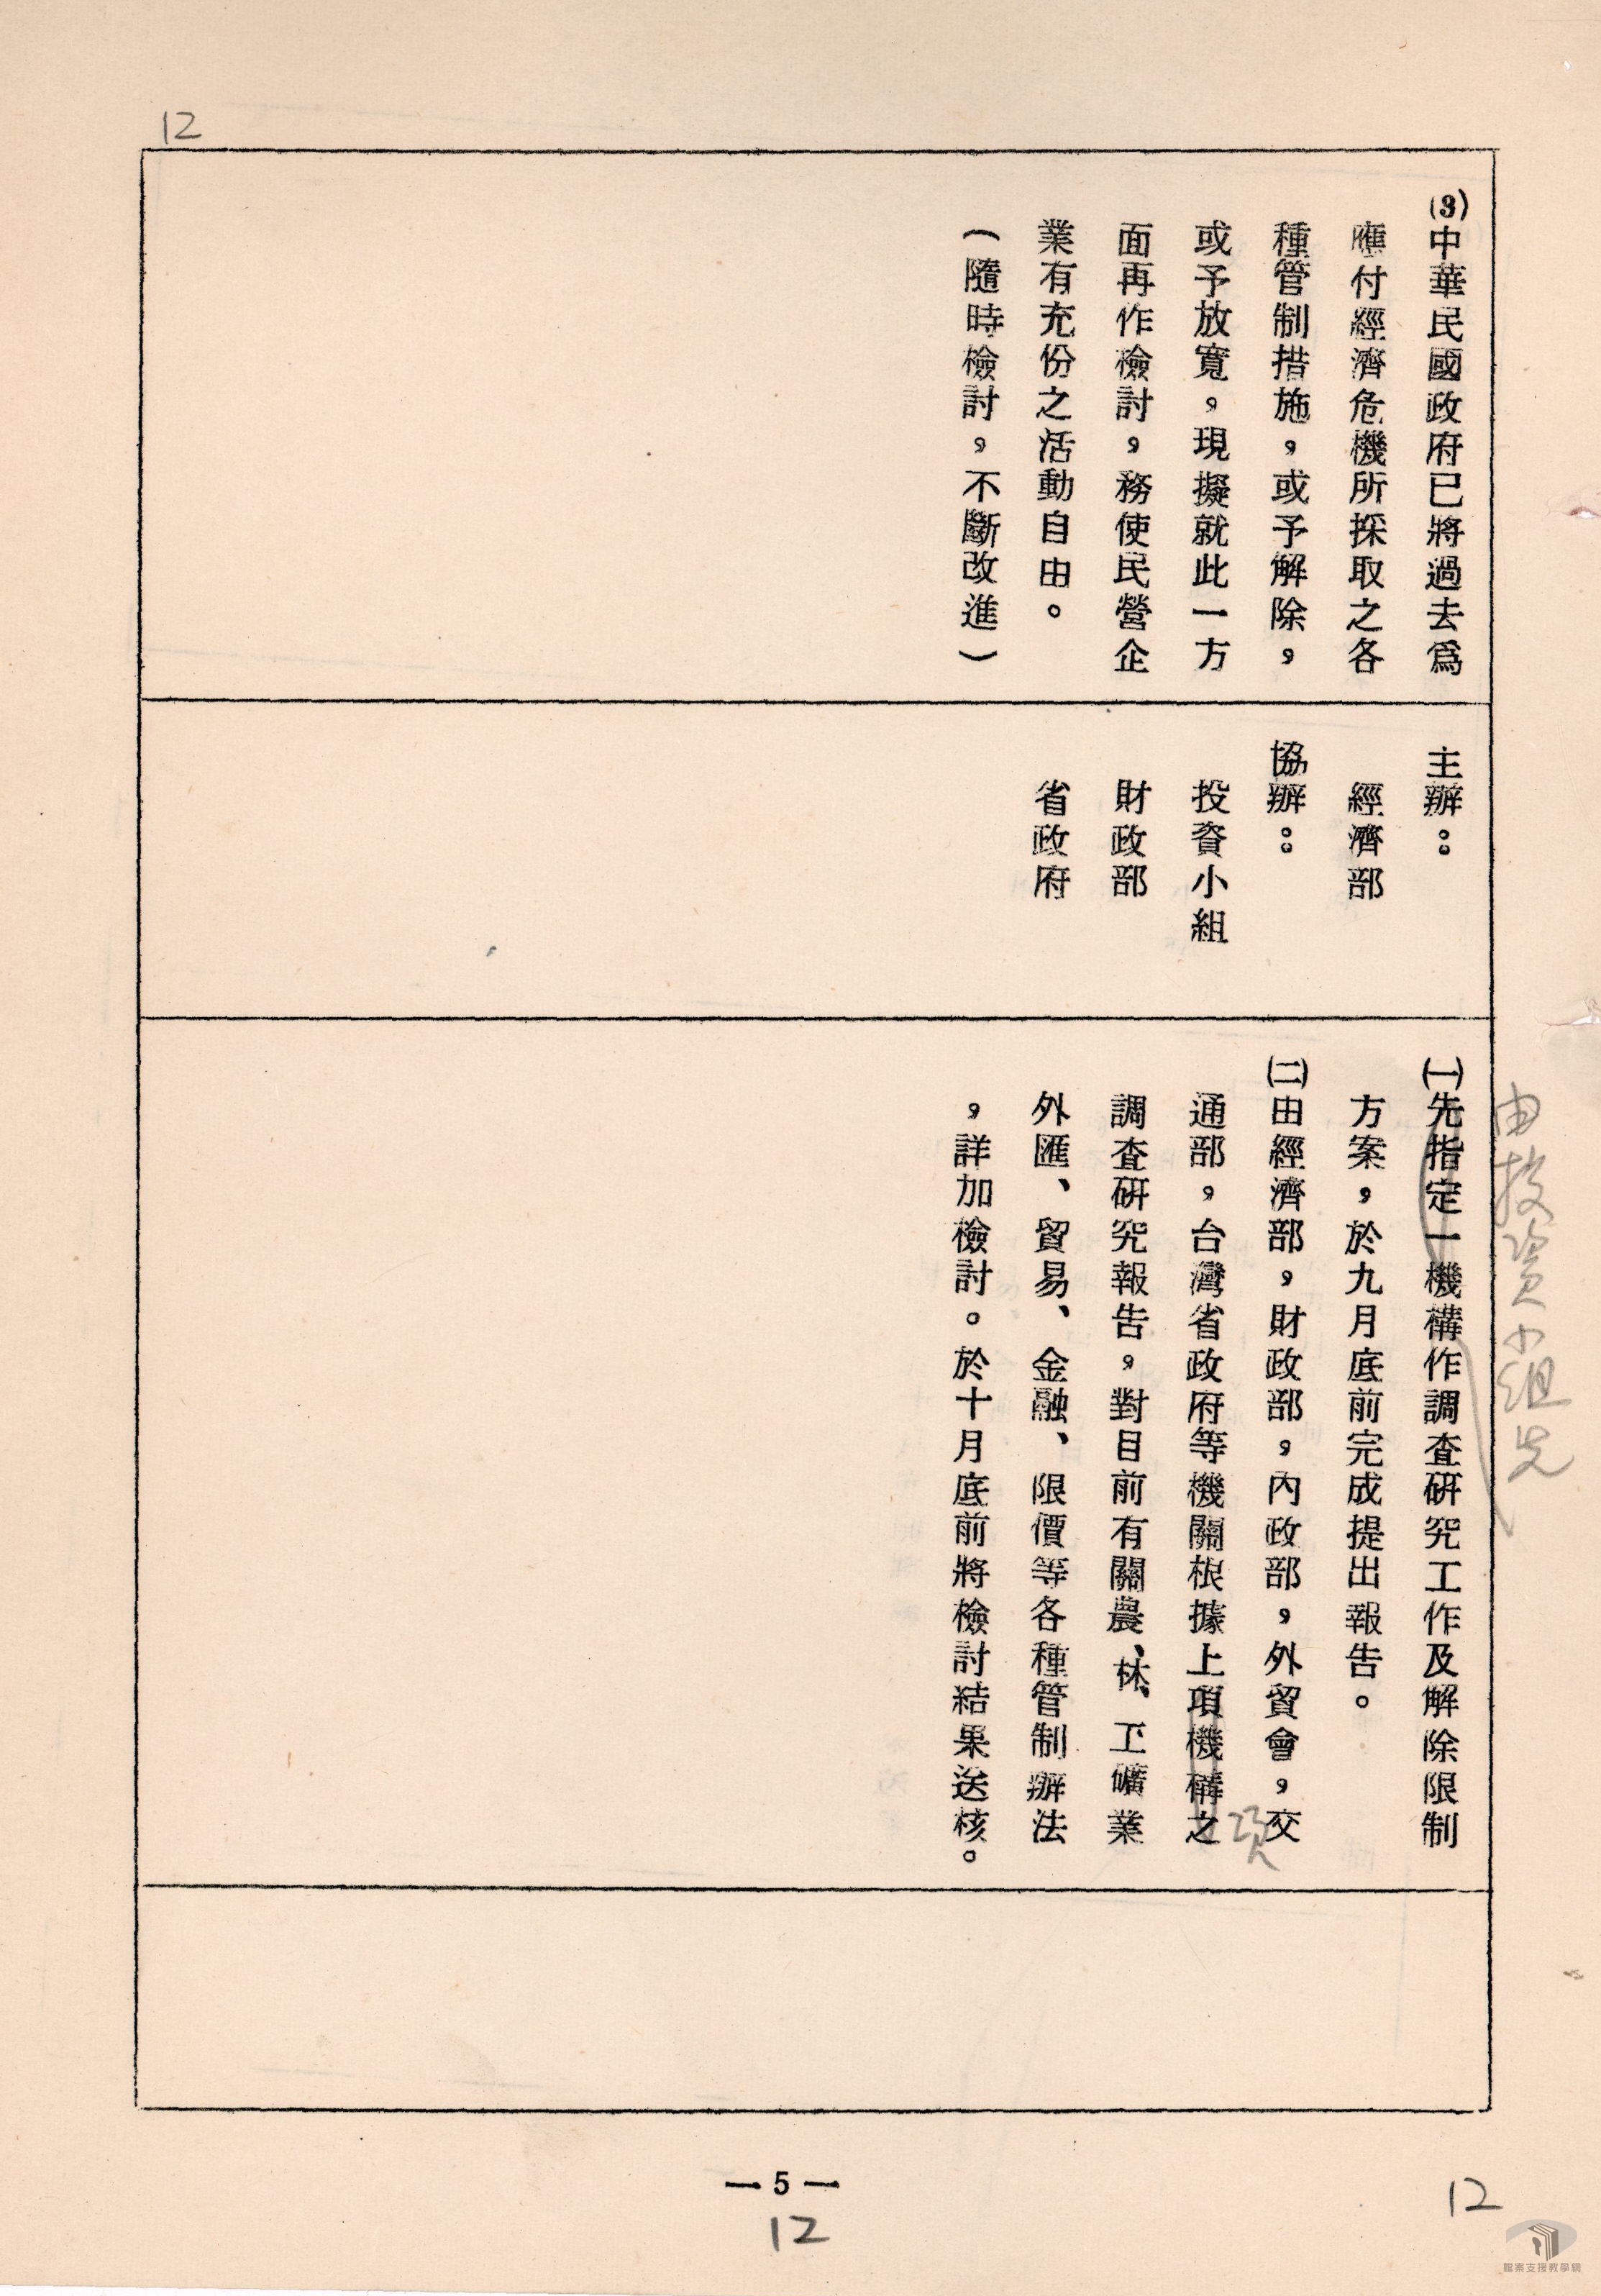 12
(3)中華民國政府已將過去爲
應付經濟危機所採取之各
種管制措施，或予解除，
或予放寬，現擬就此一方
面再作檢討，務使民營企
業有充份之活動自由。
（隨時檢討，不斷改進）
主辦：
經濟部
協辦：
投資小組
財政部
省政府
由投資小組先
㈠先指定一機構作調查研究工作及解除限制
方案，於九月底前完成提出報告。
㈡由經濟部，財政部，內政部，外貿會，交
通部，台灣省政府等機關根據上項機構之
調查研究報告，對目前有關農、林、工礦業
外匯、貿易、金融、限價等各種管制辦法
，詳加檢討。於十月底前將檢討結果送核。
— 5 —
12
12
檔案支援教學網